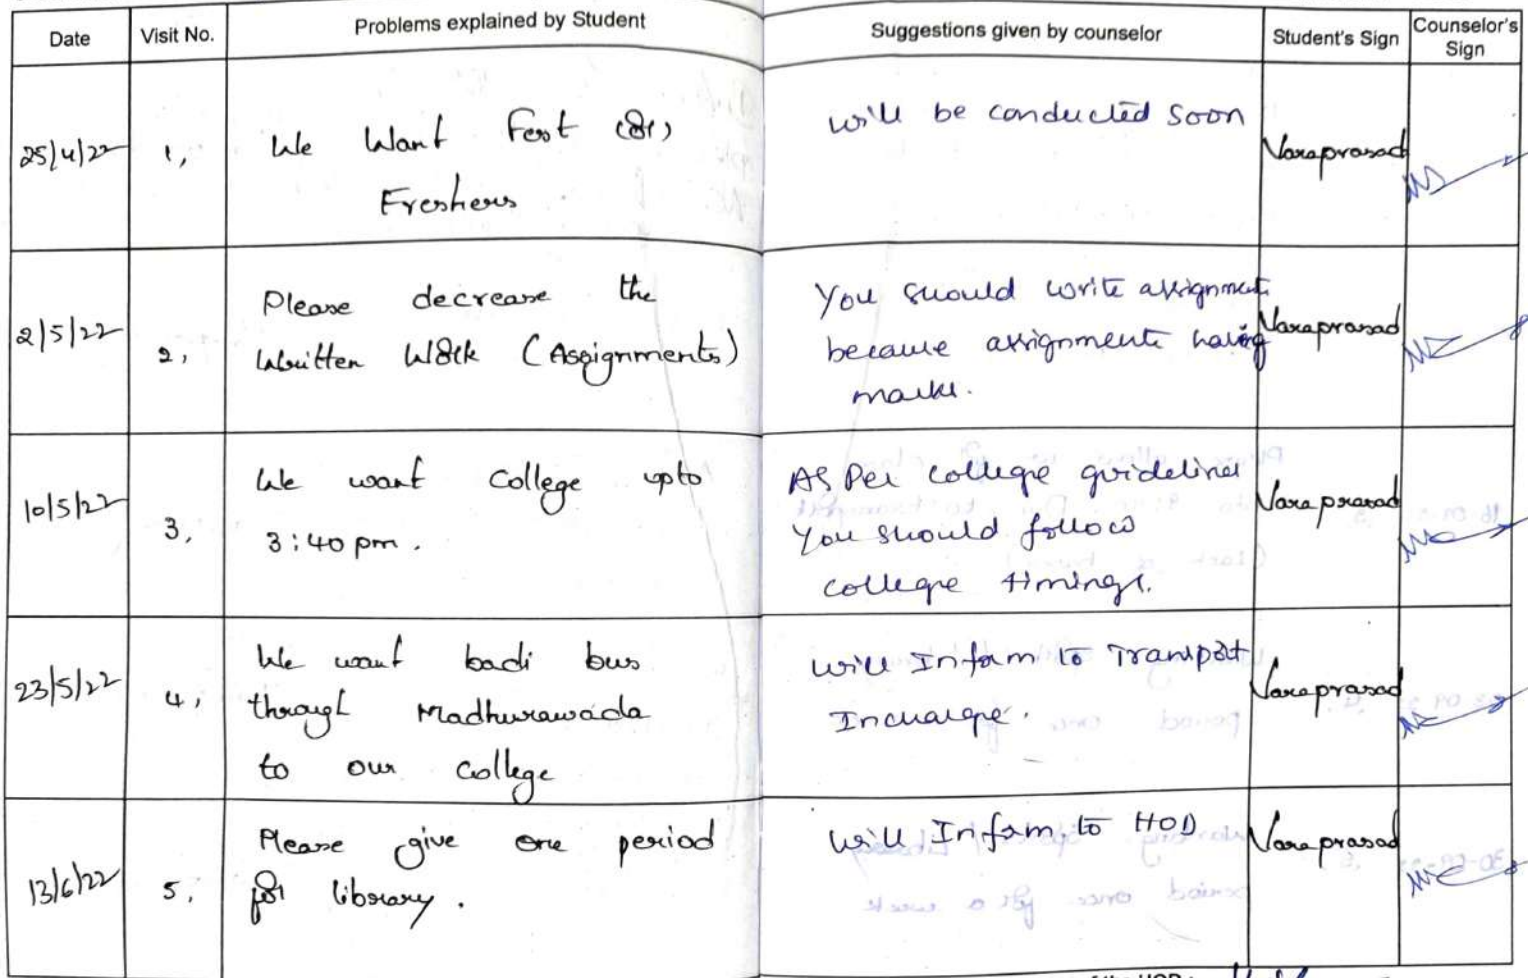 Date Visit No. Problems explained by Student Suggestions given by counselor Student's Sign Counselor's Sign
25/4/22 1, We Want Fest (or)
Freshers
will be conducted soon
Varaprasad
2/5/22 2, Please decrease the
Written Work (Assignments)
You should write assignment
because assignments having
marks.
Varaprasad
10/5/22 3, We want College upto
3:40 pm.
As Per college guidelines
You should follow
college timings.
Varaprasad
23/5/22 4, We want badi bus
through Madhurawada
to our college
will Inform to Transport
Incharge.
Varaprasad
13/6/22 5, Please give one period
for library.
will Inform to HOD
Varaprasad